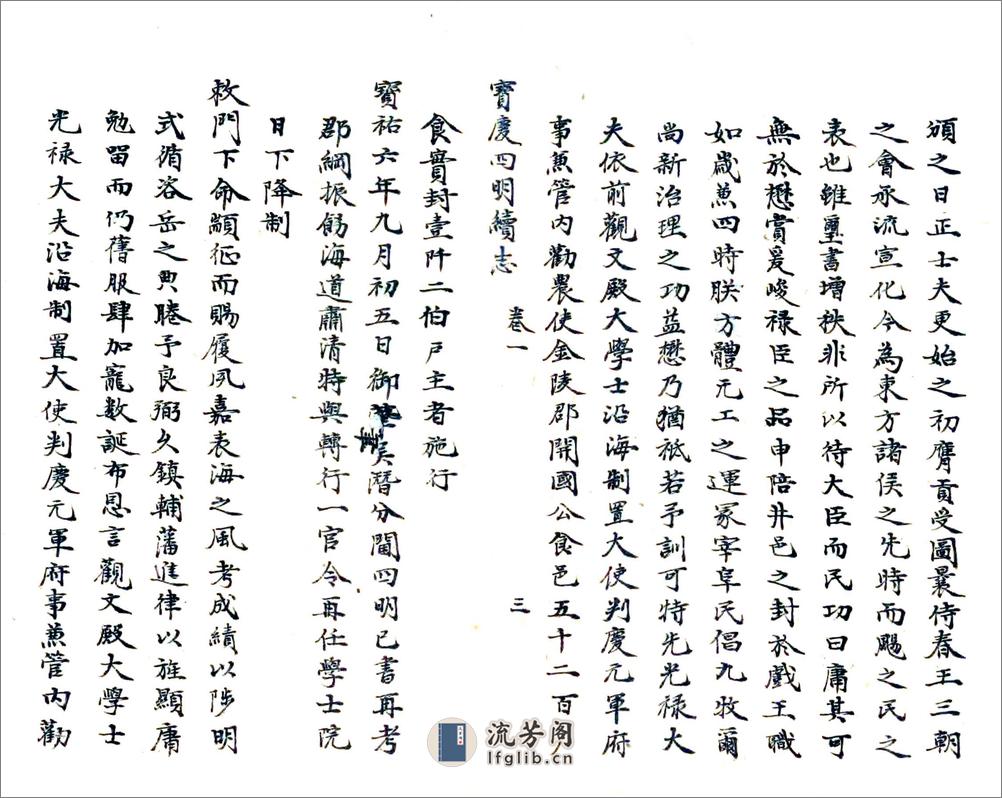 頒之日正士夫更始之初膺貢受圖曩侍春王三朝
之會承流宣化今為東方諸侯之先時而颺之民之
表也雖璽書增秩非所以待大臣而民功曰庸其可
無於懋賞爰峻祿臣之品申陪井邑之封於戲王職
如歲兼四時朕方體元工之運冢宰阜民倡九牧爾
尚新治理之功益懋乃猶祗若予訓可特先光祿大
夫依前觀文殿大學士沿海制置大使判慶元軍府
事兼管内勸農使金陵郡開國公食邑五十二百
寳慶四明續志 卷一 三
食實封壹阡二伯戸主者施行
寳祐六年九月初五日御筆吳潛分閫四明已書再考
郡綱振飭海道肅清特與轉行一官令再任學士院
日下降制
敕門下命顓征而賜履夙嘉表海之風考成績以陟明
式循咨岳之典睠予良弼久鎮輔藩進律以旌顯庸
勉留而仍舊服肆加寵數誕布恩言觀文殿大學士
光禄大夫沿海制置大使判慶元軍府事兼管内勸
流芳阁
lfglib.cn